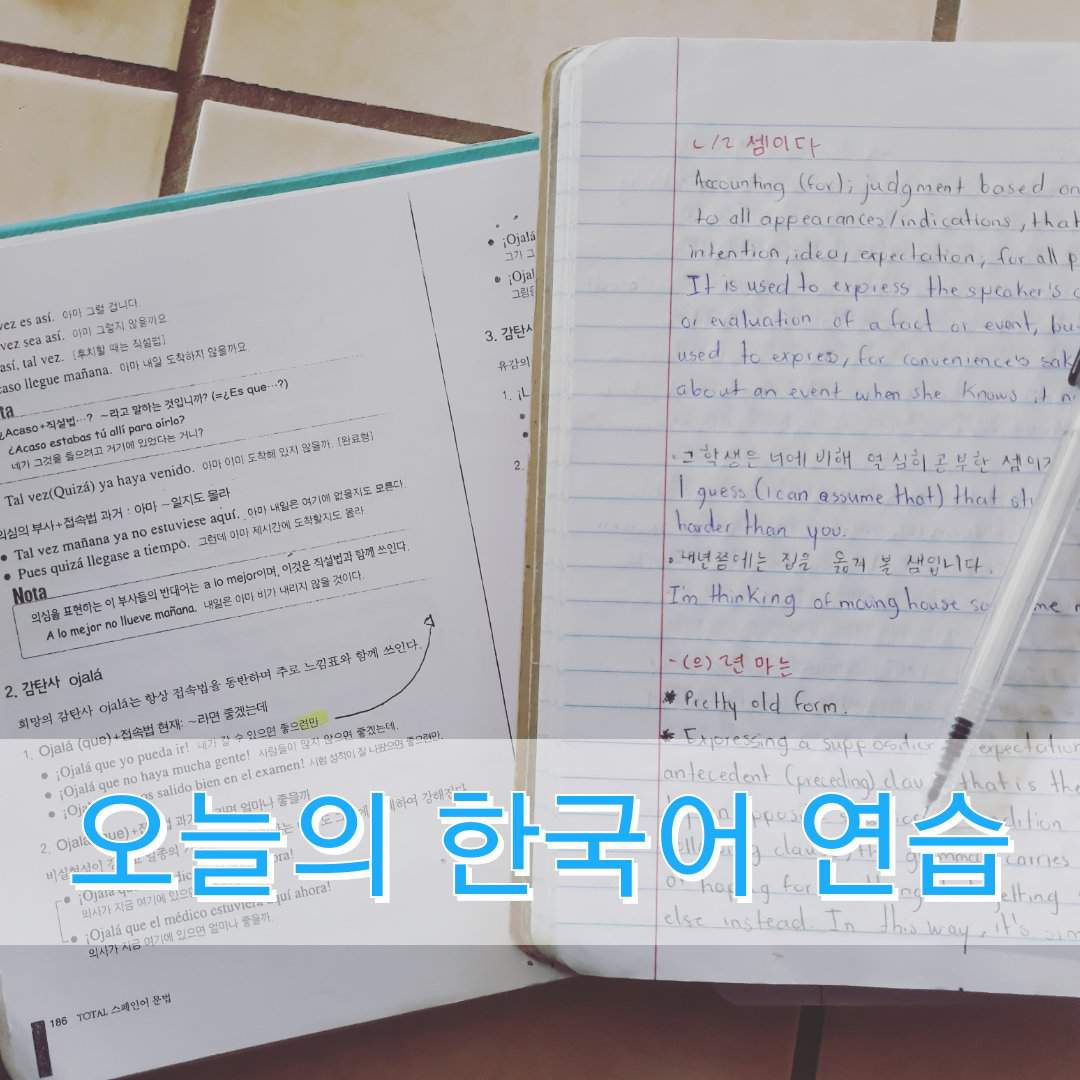 vez es así. 아마 그럴 겁니다.
vez sea así. 아마 그렇지 않을까요
así, tal vez. [후치할 때는 직설법]
caso llegue mañana. 아마 내일 도착하지 않을까요
ta
¿Acaso+직설법…? ~라고 말하는 것입니까? (=¿Es que…?)
¿Acaso estabas tú allí para oírlo?
네가 그것을 들으려고 거기에 있었다는 거니?
Tal vez(Quizá) ya haya venido. 아마 이미 도착해 있지 않을까. [완료형]
의심의 부사+접속법 과거 : 아마 ~일지도 몰라
• Tal vez mañana ya no estuviese aquí. 아마 내일은 여기에 없을지도 모른다.
• Pues quizá llegase a tiempo. 그런데 아마 제시간에 도착할지도 몰라
Nota
의심을 표현하는 이 부사들의 반대어는 a lo mejor이며, 이것은 직설법과 함께 쓰인다.
A lo mejor no llueve mañana. 내일은 아마 비가 내리지 않을 것이다.
2. 감탄사 ojalá
희망의 감탄사 ojalá는 항상 접속법을 동반하며 주로 느낌표와 함께 쓰인다.
1. Ojalá (que)+접속법 현재: ~라면 좋겠는데
• ¡Ojalá que yo pueda ir! 내가 갈 수 있으면 좋으련만
• ¡Ojalá que no haya mucha gente! 사람들이 많지 않으면 좋겠는데.
• salido bien en el examen! 시험 성적이 잘 나왔으면 좋으련만.
2. Ojalá
• ¡Ojalá
의사가 지금 여기에
• ¡Ojalá que el médico estuviera aquí ahora!
의사가 지금 여기에 있으면 얼마나 좋을까.
186 TOTAL 스페인어 문법
• ¡Ojalá
그가 그
• ¡Ojal
3. 감탄사
유감의
1. ¡L
2.
ㄴ/ㄹ 셈이다
Accounting (for); judgment based on
to all appearances/indications, that
intention, idea, expectation; for all p
It is used to express the speaker's
or evaluation of a fact or event, bu
used to express, for convenience's sak
about an event when she knows it n
• 그 학생은 너에 비해 열심히 공부한 셈이
I guess (I can assume that) that
harder than you.
• 내년쯤에는 집을 옮겨 볼 셈입니다.
I'm thinking of moving house
-(으)련마는
* Pretty old form.
* Expressing a supposition expectation
antecedent (preceding) clau that is the
carries
or hoping for getting
else instead. In this way, it's
오늘의 한국어 연습